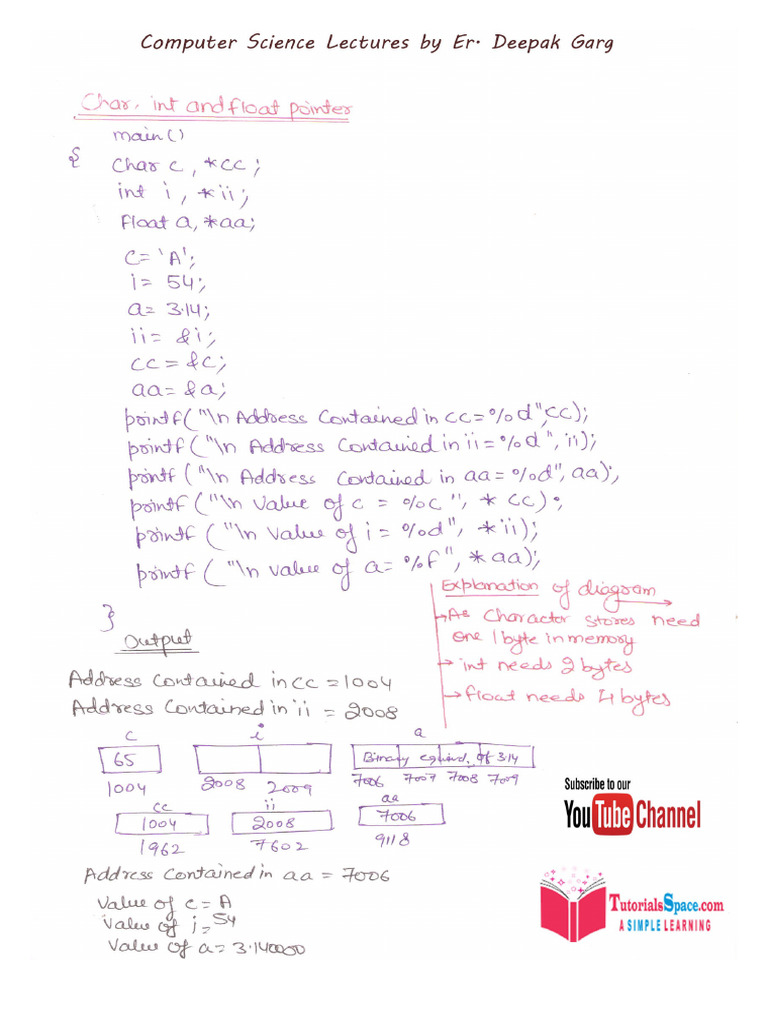 Computer Science Lectures by Er. Deepak Garg
Char, int and float pointer
main()
{ Char c , *cc ;
int i , *ii ;
Float a, *aa;
C= 'A';
i= 54;
a= 3.14;
ii= &i;
cc = &c;
aa= &a;
printf("\n Address Contained in cc=%d",cc);
printf("\n Address Contained in ii = %d", ii);
printf("\n Address Contained in aa=%d", aa);
printf ("\n Value of c = %c ", * cc) ;
printf ("\n Value of i = %d", *ii);
printf ("\n value of a= %f ", * aa);
}
Explanation of diagram
→ As Character stores need
one 1 byte in memory
→ int needs 2 bytes
→ float needs 4 bytes
Output
Address Contained in cc =1004
Address Contained in ii = 2008
c i a
65 Binary equivd. of 3.14
1004 2008 2009 7006 7007 7008 7009
cc ii aa
1004 2008 7006
1962 7602 9118
Address Contained in aa = 7006
Value of c = A
Value of i = 54
Value of a = 3.140000
Subscribe to our
YouTube Channel
TutorialsSpace.com
A SIMPLE LEARNING